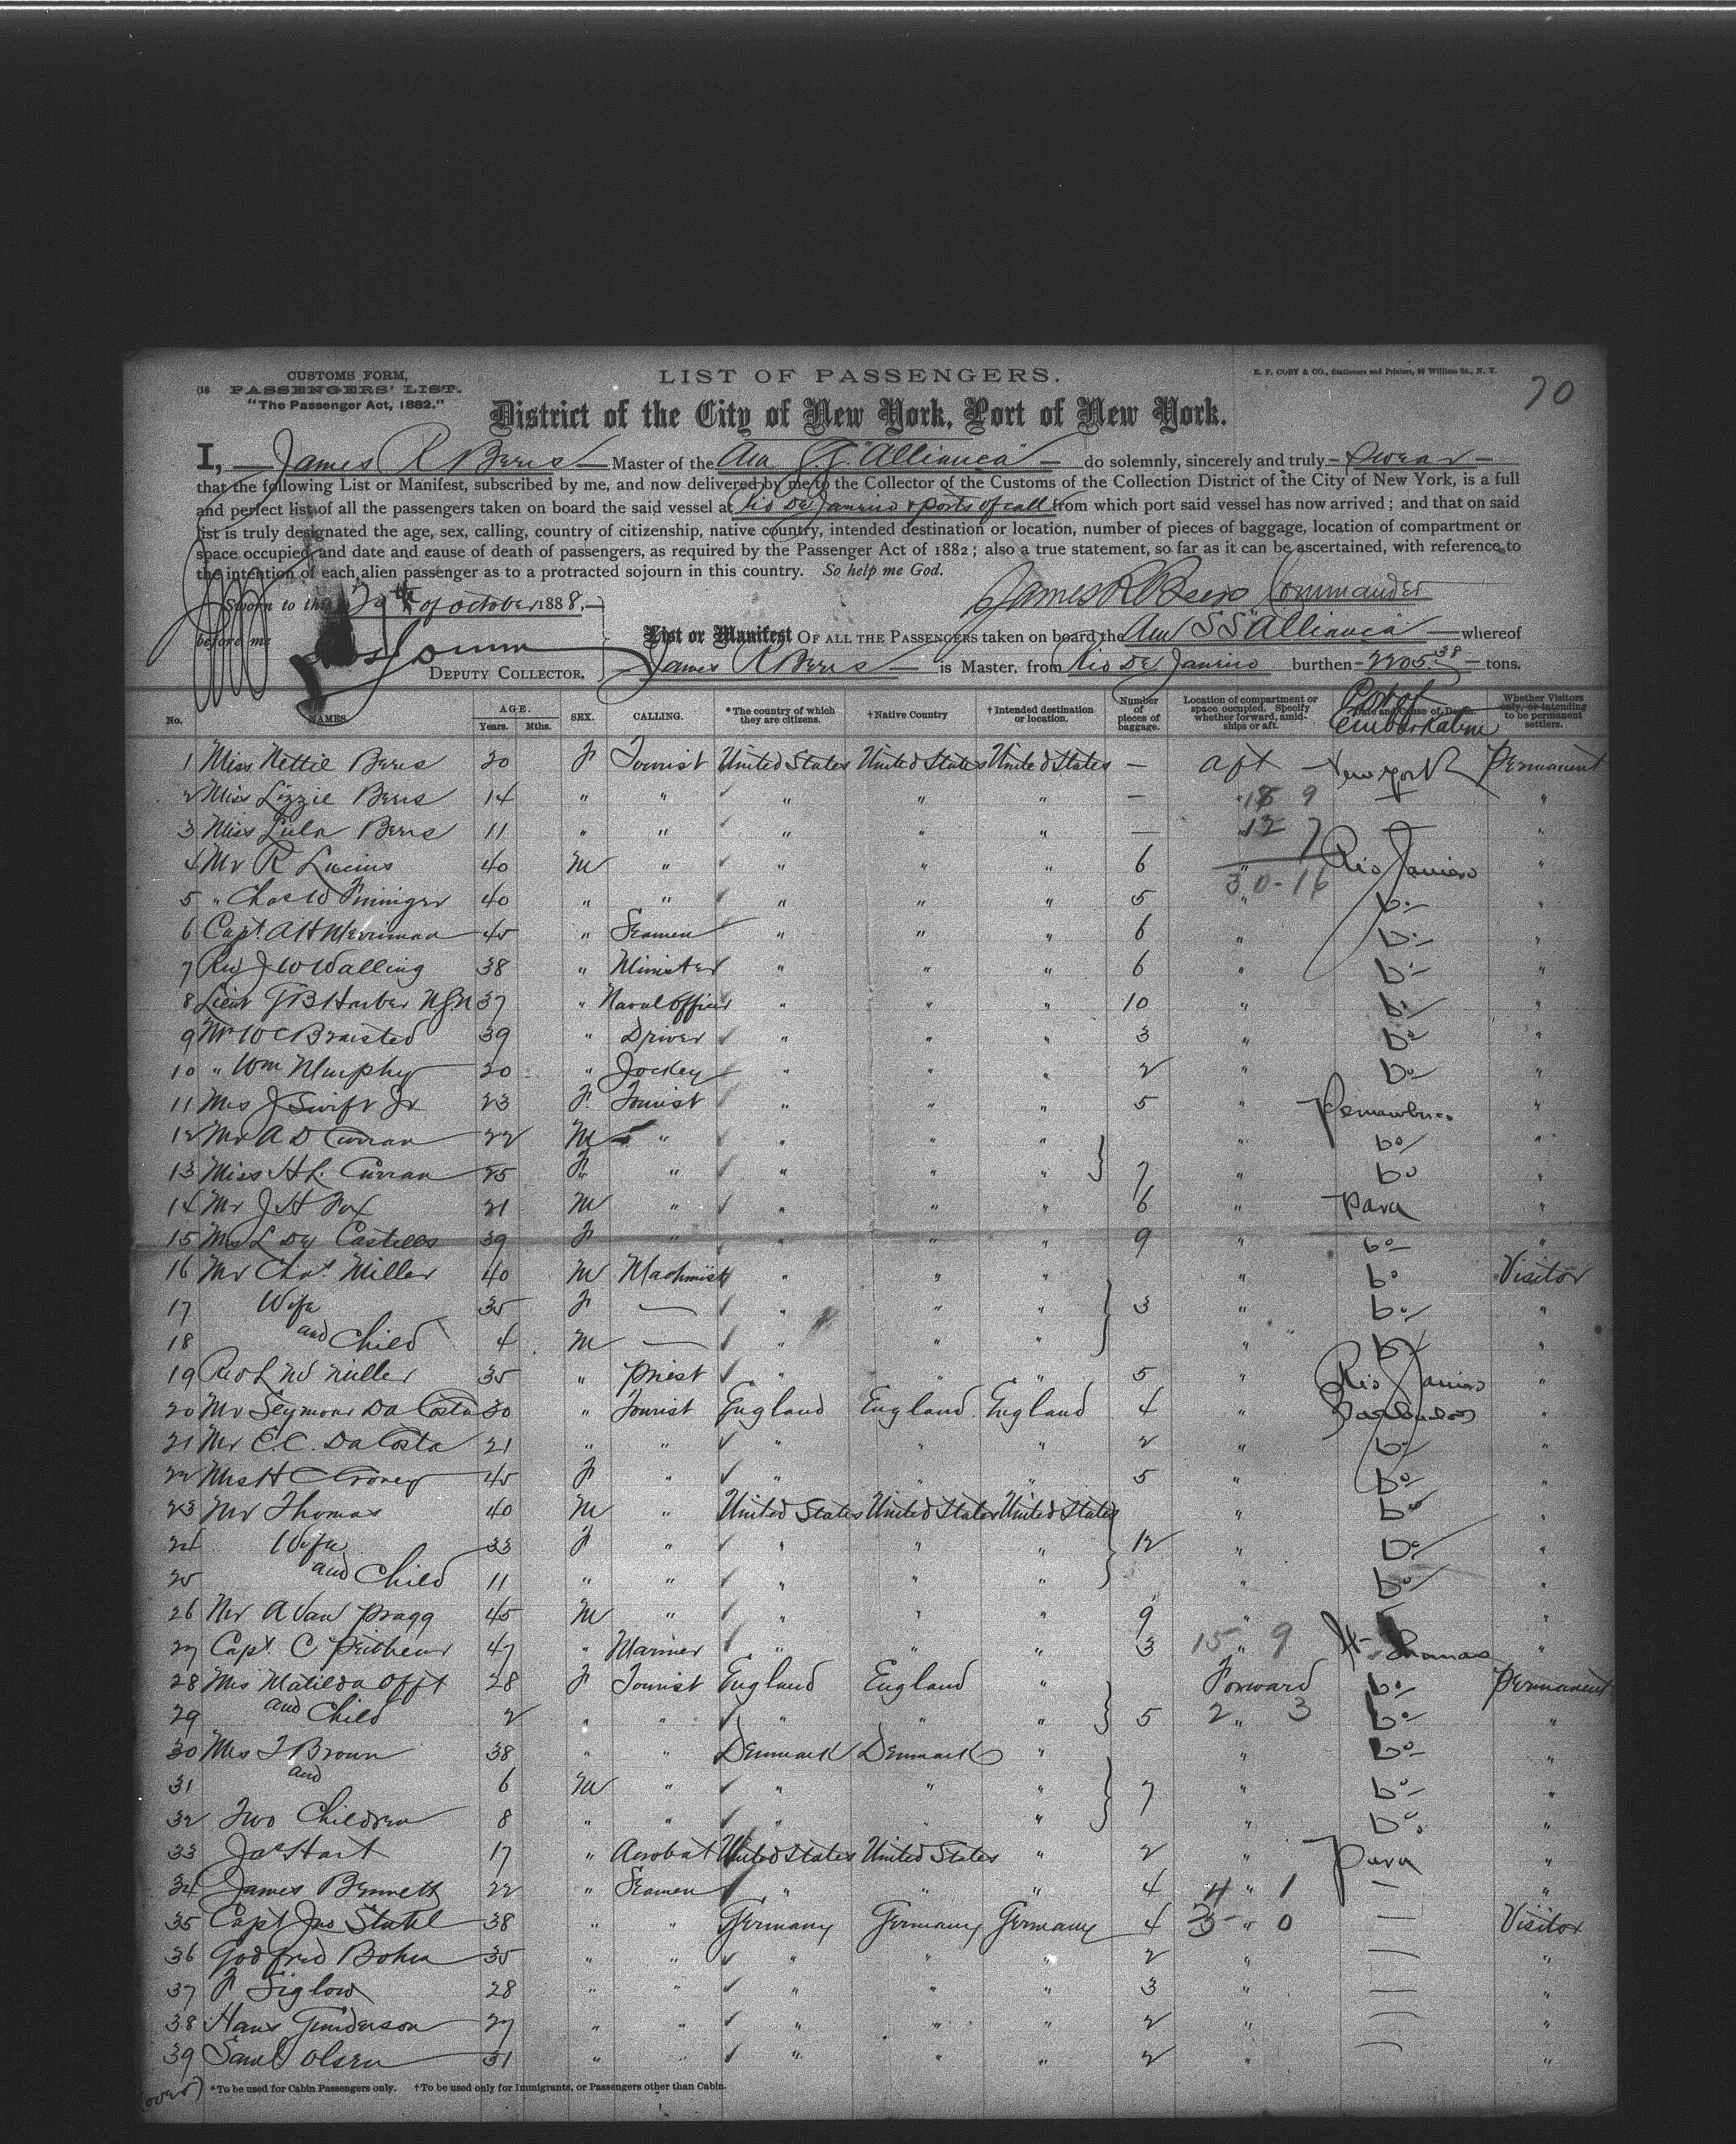 CUSTOMS FORM,
PASSENGERS' LIST.
"The Passenger Act, 1882."
LIST OF PASSENGERS.
E. P. COBY & CO., Stationers and Printers, William St., N. Y.
70
District of the City of New York, Port of New York.
I, James R Beers Master of the Am S.S. "Allianca" do solemnly, sincerely and truly swear
that the following List or Manifest, subscribed by me, and now delivered by me to the Collector of the Customs of the Collection District of the City of New York, is a full
and perfect list of all the passengers taken on board the said vessel at Rio De Janeiro & ports of call from which port said vessel has now arrived; and that on said
list is truly designated the age, sex, calling, country of citizenship, native country, intended destination or location, number of pieces of baggage, location of compartment or
space occupied, and date and cause of death of passengers, as required by the Passenger Act of 1882; also a true statement, so far as it can be ascertained, with reference to
the intention of each alien passenger as to a protracted sojourn in this country. So help me God.
Sworn to this of October 1888,
James R Beers Commander
before me
DEPUTY COLLECTOR.
List or Manifest OF ALL THE PASSENGERS taken on board the Am SS "Allianca" whereof
James R Beers is Master, from Rio De Janeiro burthen 2205 38 tons.
No. NAMES. AGE. Years. Mths. SEX. CALLING. *The country of which they are citizens. †Native Country †Intended destination or location. Number of pieces of baggage. Location of compartment or space occupied. Specify whether forward, amidships or aft. Date and Cause of Death. Port of Embarkation Whether Visitors only, or intending to be permanent settlers.
1 Miss Nettie Beers 20 F Tourist United States United States United States — aft — New York Permanent
2 Miss Lizzie Beers 14 " " " " " — " 18 9 — "
3 Miss Lula Beers 11 " " " " " — " 12 7 — "
4 Mr R Lucius 40 M " " " " 6 " Rio Janeiro "
5 " Chas W 40 " " " " " 5 " 30-16 Do "
6 Capt A H Merriman 45 " Seamen " " " 6 " Do "
7 Rev J W Walling 38 " Minister " " " 6 " Do "
8 Lieut G B Harber USN 37 " Naval Officer " " " 10 " Do "
9 Mr W C Braisted 39 " Driver " " " 3 " Do "
10 " Wm Murphy 20 " Jockey " " " 2 " Do "
11 Mrs J Swift Jr 23 F Tourist " " " 5 " Pernambuco "
12 Mr A D Curran 22 M " " " " " Do "
13 Miss H L Curran 25 F " " " " 7 " Do "
14 Mr J H Fox 21 M " " " " 6 " Para "
15 Mrs L De Castells 39 F " " " " 9 " Do "
16 Mr Chas Miller 40 M Machinist " " " " Do Visitor
17 Wife 35 F — " " " 3 " Do "
18 and Child 4 M — " " " " Do "
19 Rev L W Miller 35 " Priest " " " 5 " Rio Janeiro "
20 Mr Seymour Da Costa 30 " Tourist England England England 4 " Barbados "
21 Mr C.C. Da Costa 21 " " " " " 2 " Do "
22 Mrs H 45 F " " " " 5 " Do "
23 Mr Thomas 40 M " United States United States United States " Do "
24 Wife 33 F " " " " 12 " Do "
25 and Child 11 " " " " " " Do "
26 Mr A Van Pragg 45 M " " " " 9 " "
27 Capt C 47 " Mariner " " " 3 15 " 9 St Thomas "
28 Mrs Matilda Offt 28 F Tourist England England " Forward Do Permanent
29 and Child 2 " " " " " 5 2 " 3 Do "
30 Mrs J Brown 38 " " Denmark Denmark " " Do "
31 and 6 M " " " " 7 " Do "
32 Two Children 8 " " " " " " Do "
33 Jas Hart 17 " Acrobat United States United States " 2 " Para "
34 James Bennett 22 " Seamen " " " 4 4 " 1 — "
35 Capt Jno Stahl 38 " " Germany Germany Germany 4 3 " 0 — Visitor
36 Godfried Bohn 35 " " " " " 2 " — "
37 F Siglow 28 " " " " " 3 " — "
38 Hans Gunderson 27 " " " " " 2 " — "
39 Saml Olsen 31 " " " " " 2 " — "
(over)
*To be used for Cabin Passengers only. †To be used only for Immigrants, or Passengers other than Cabin.